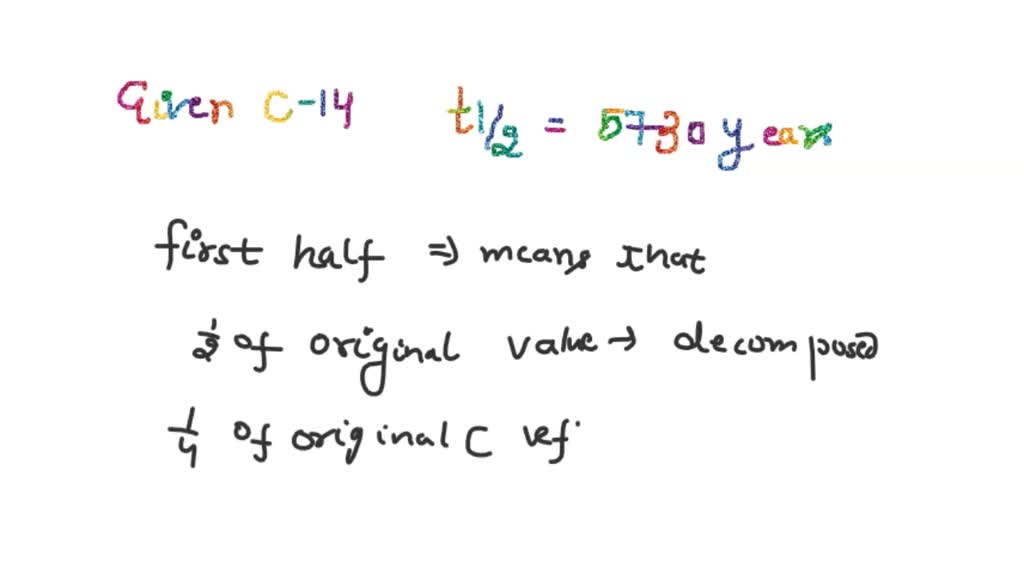 Given C-14 t1/2 = 5730 years
first half ⇒ means that
1/2 of original value → decomposed
1/4 of original C lef